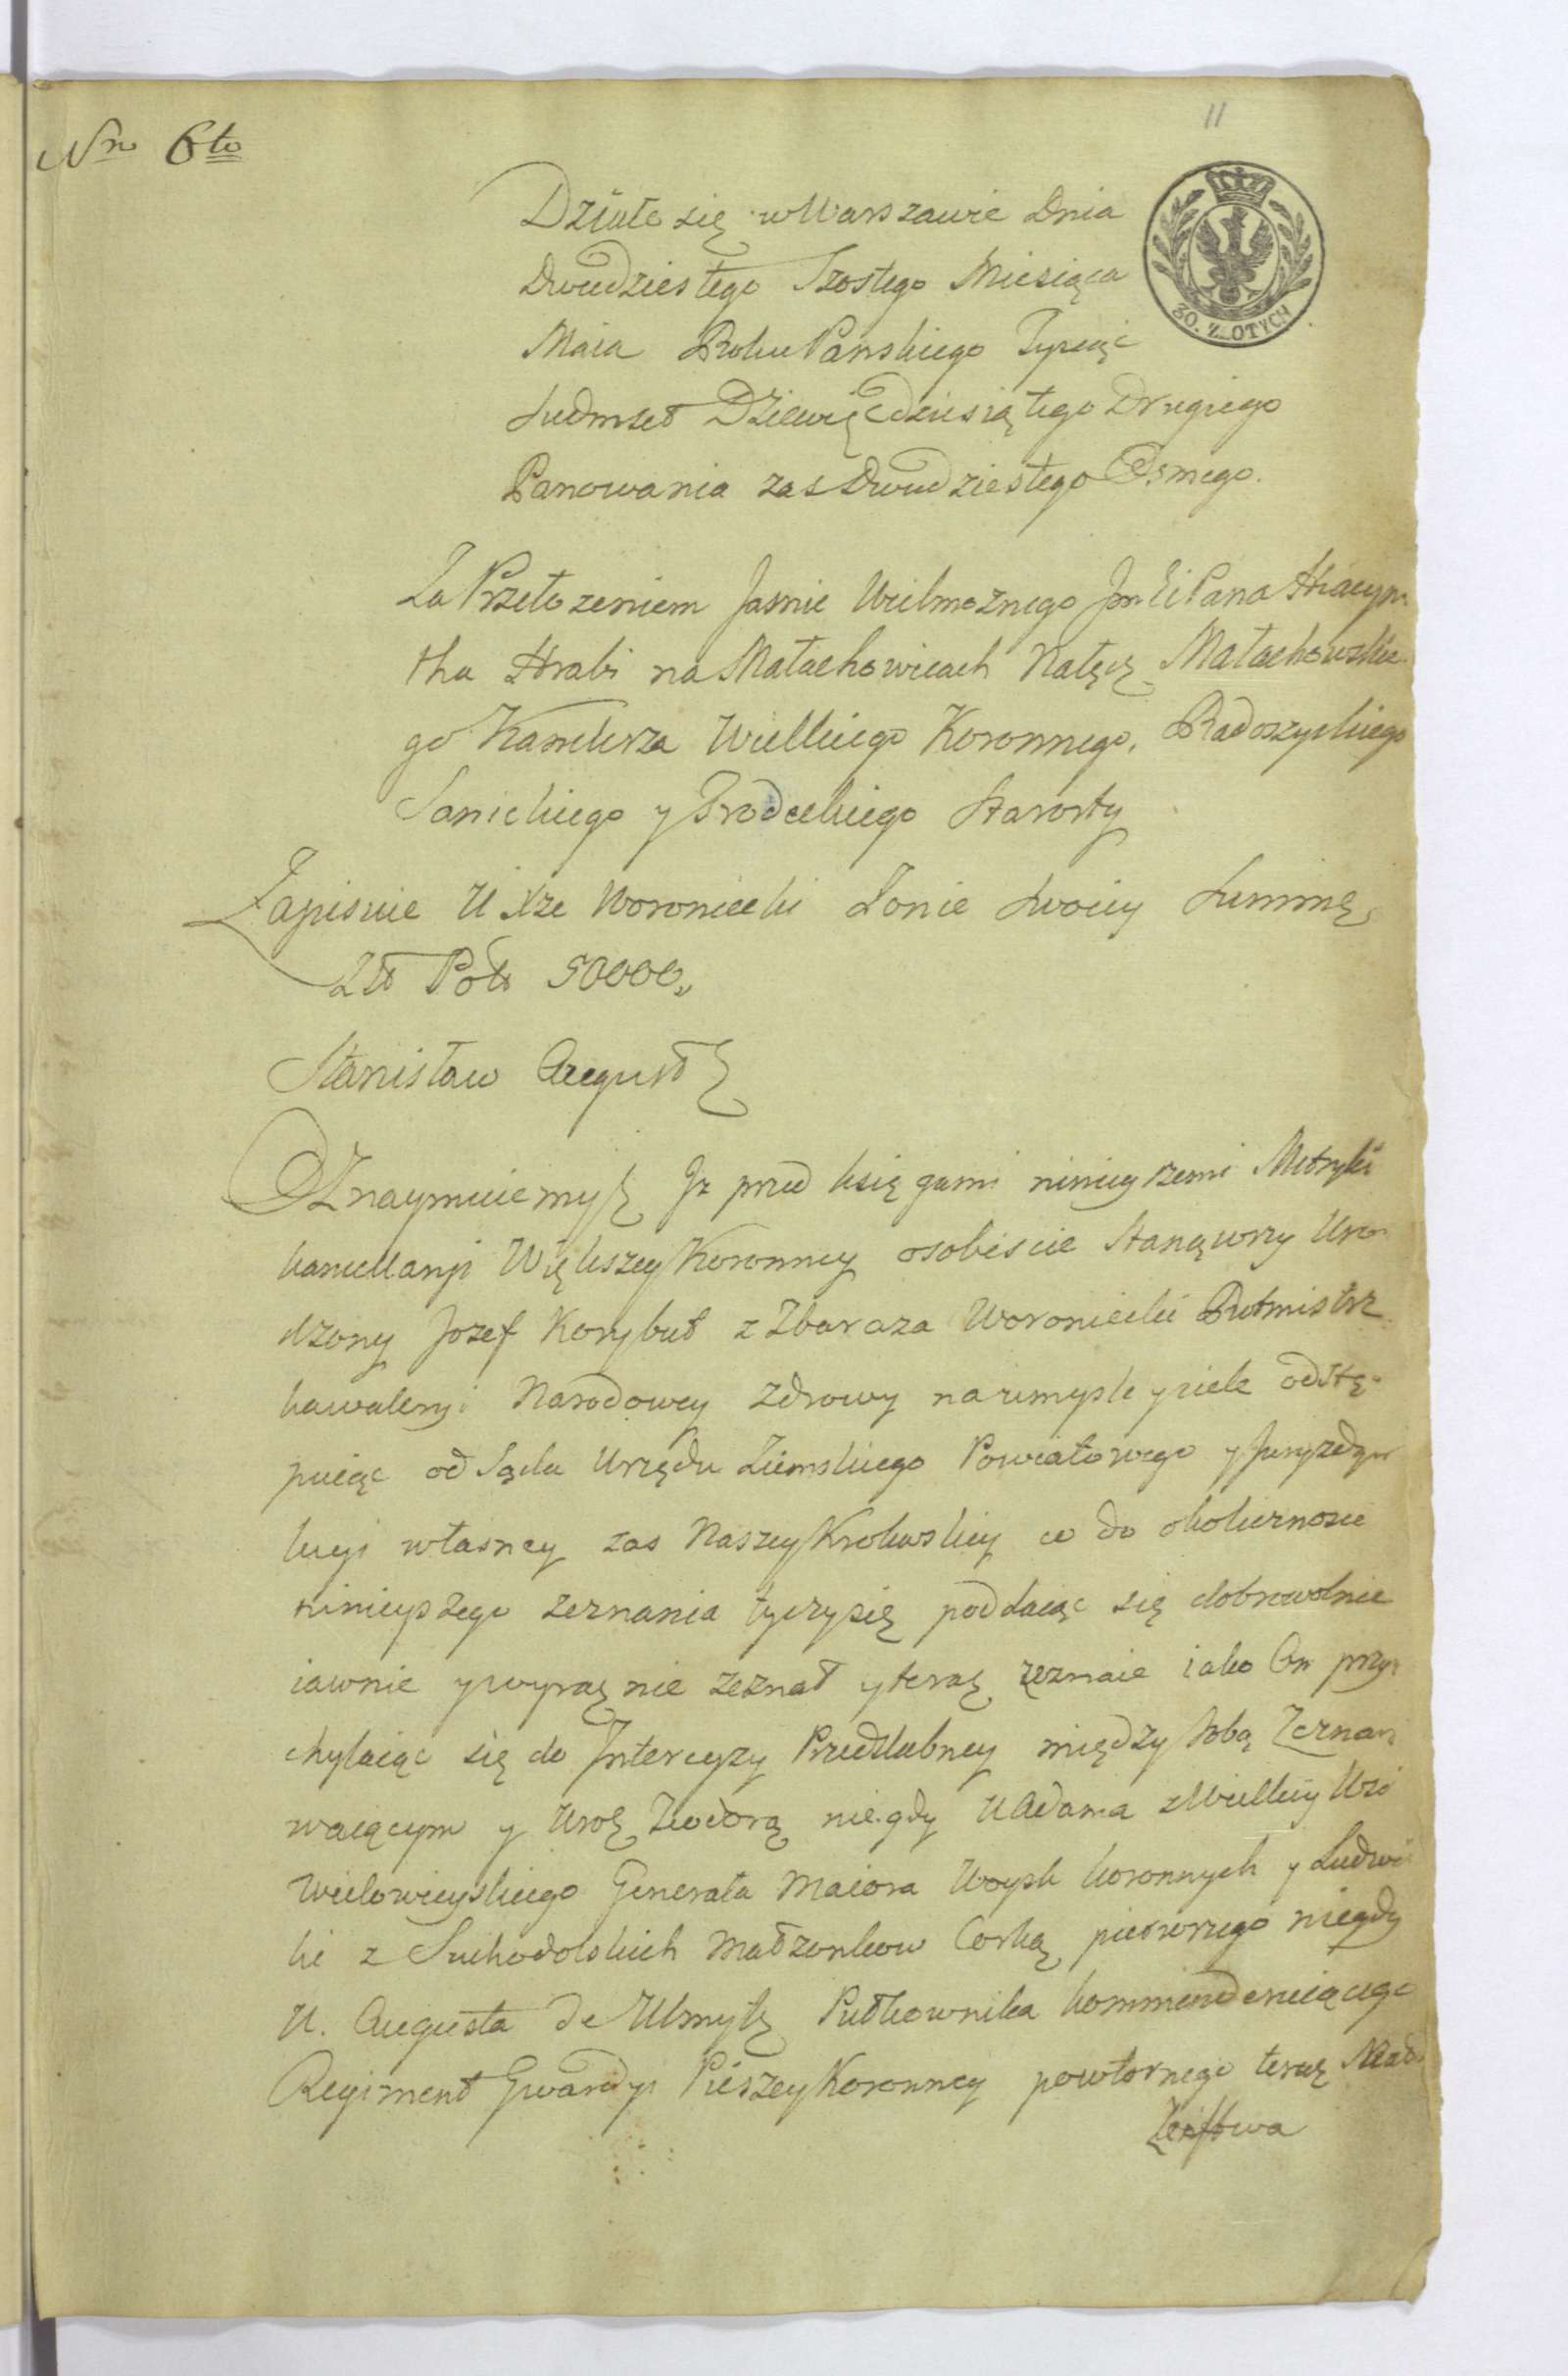 11
Nro 6to
Działo się w Warszawie Dnia
Dwudziestego Szostego Miesiąca
Maia Roku Panskiego Tysiąc
Siedmset Dziewięcdziesiątego Drugiego
Panowania zas Dwudziestego Osmego.
30. ZŁOTYCH
Za Przełozeniem Jasnie Wielmoznego Pana Hiacyn
tha Hrabi na Małachowicach Nałęcz Małachowskie
go Kanclerza Wielkiego Koronnego, Radoszyckiego
Sanickiego y Grodeckiego Starosty
Zapisuie U Xże Woroniecki Zonie Swoiey Summę
Zło Pols 50000„
Stanisław August
Oznaymuiemy Iz przed księgami ninieyszemi Metryki
kancellaryi Większey Koronney osobiscie stanąwszy Uro
dzony Jozef Korybut z Zbaraza Woroniecki Rotmistrz
kawaleryi Narodowey zdrowy na umysle y ciele odstę-
puiąc od Sądu Urzędu Ziemskiego Powiatowego y Juryzdy
kcyi własney zas Naszey Krolewskiey co do okolicznosci
ninieyszego zeznania tyczy się poddaiąc się dobrowolnie
iawnie y wyraznie zeznał y teraz zeznaie iako On przy
chylaiąc się do Intercyzy Przedslubney między sobą Zezna
waiącym y Urodz Teodorą niegdy U Adama z Wielkiey Wsi
Wielowieyskiego Generała Maiora Woysk koronnych y Ludwi
ki z Suchodolskich Małzonkow Corką pierwszego niegdy
U. Augusta de Pułkownika kommenderuiącego
Regiment Gwardyi Pieszey Koronney powtornego teraz